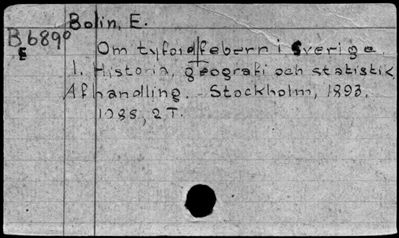 Bolin, E.
B6890
S
Om tyfoidfebern i Sverige.
1. Historia, geografi och statistik.
Afhandling. - Stockholm, 1893.
2 T.